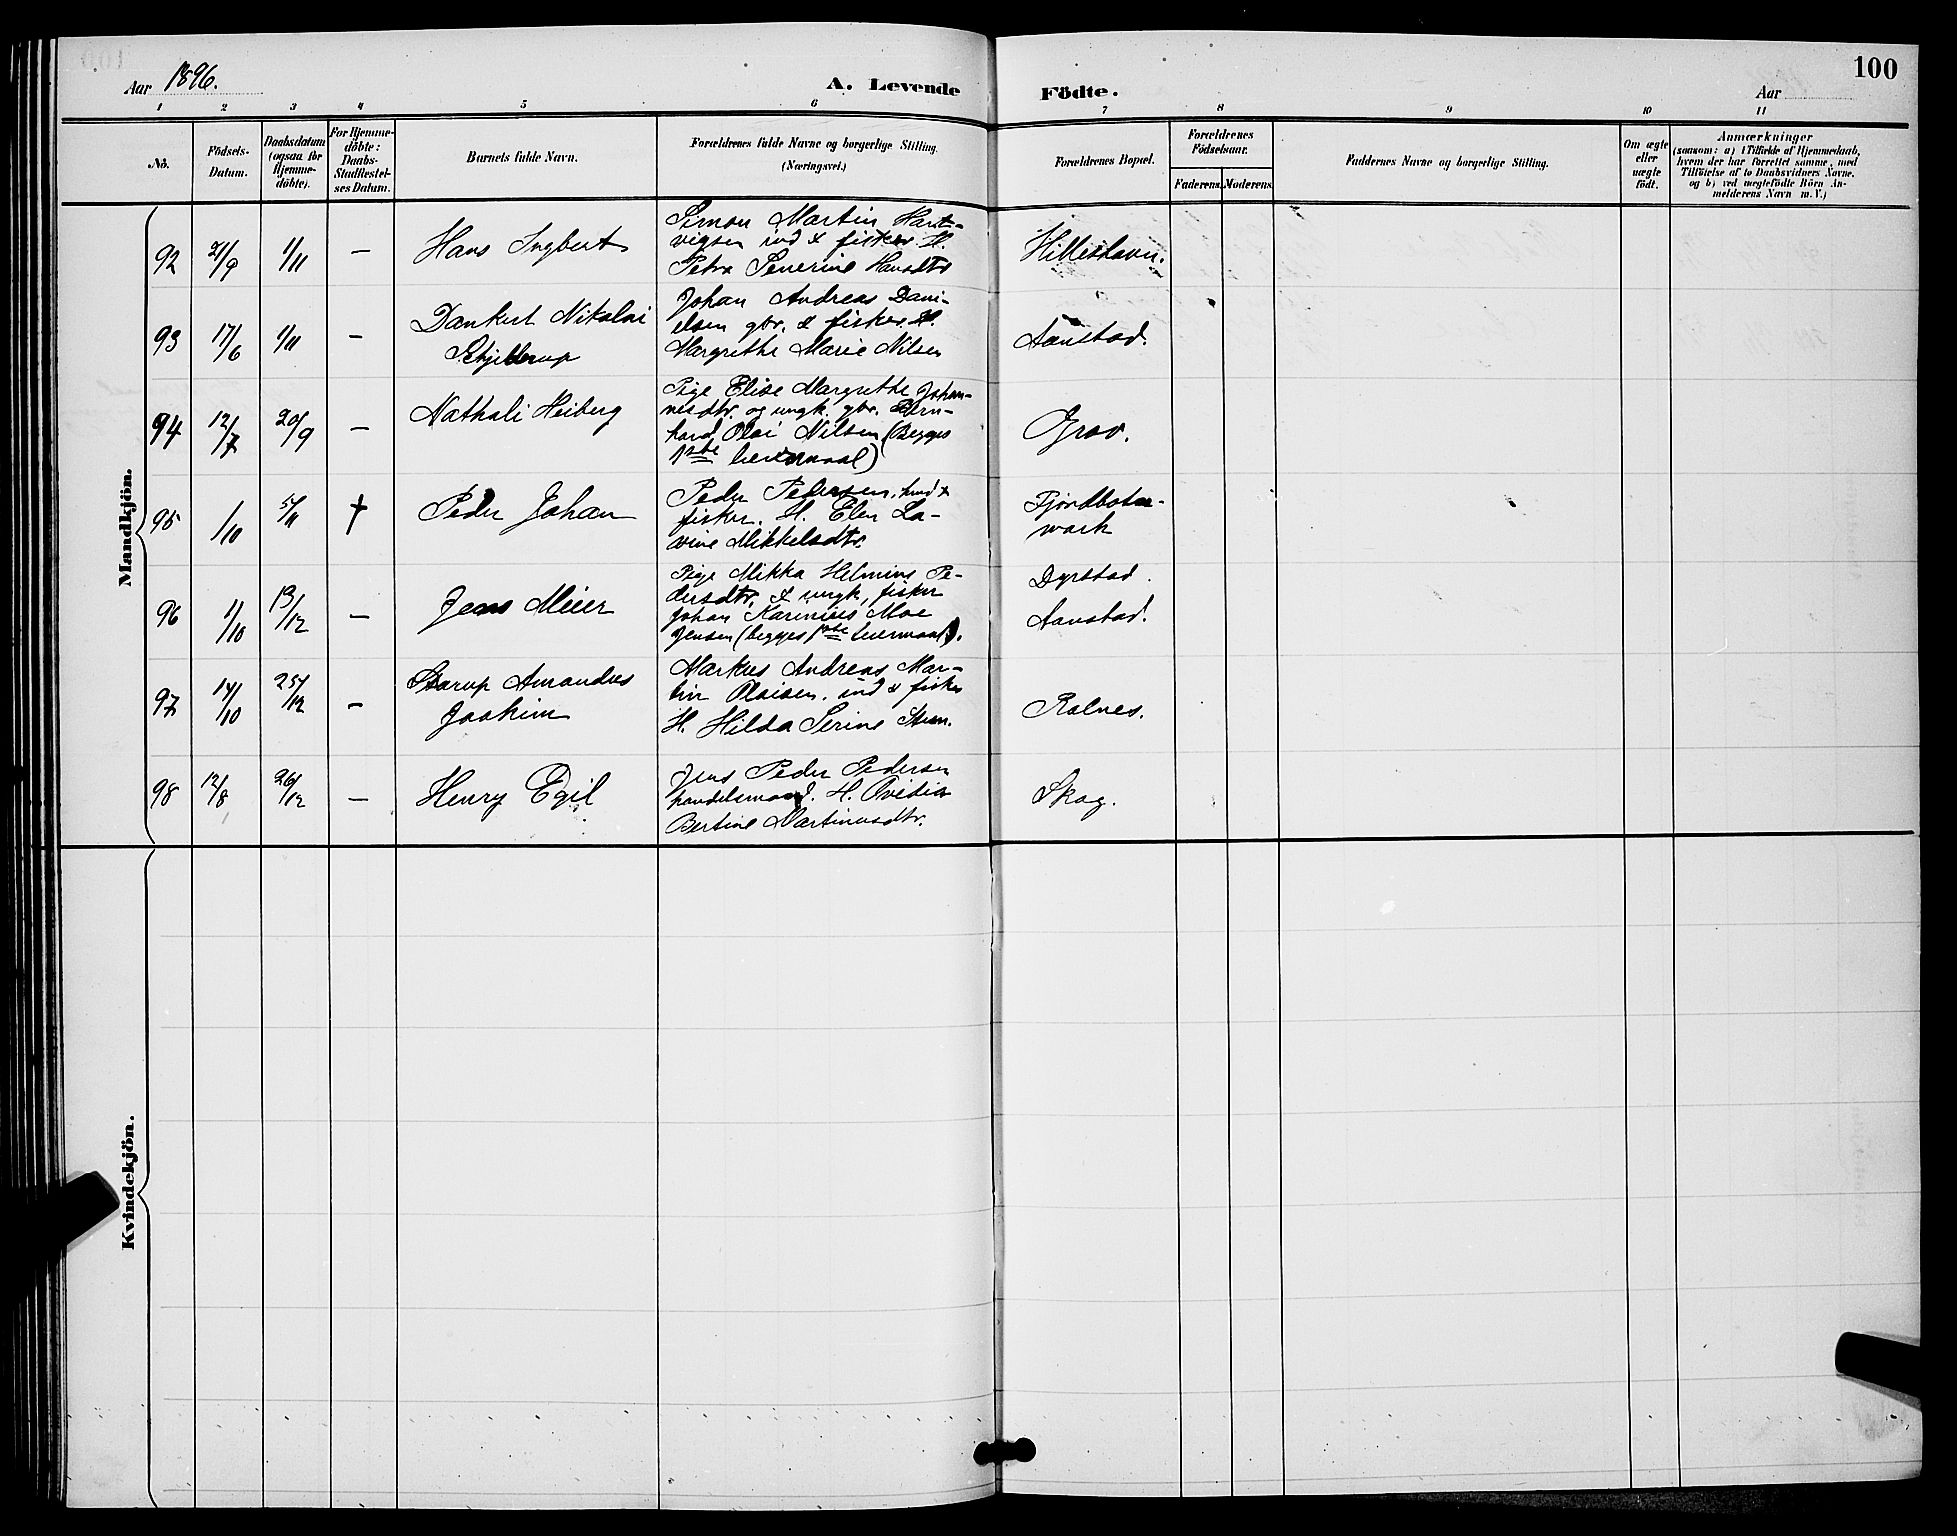 Aar 1896.
A. Levende Födte.
100
Aar
1 2 3 4 5 6 7 8 9 10 11
No.
Födsels-
Datum.
Daabsdatum
(ogsaa for
Hjemme-
döbte).
For Hjemme-
döbte:
Daabs-
Stadfæstel-
ses Datum.
Barnets fulde Navn.
Forældrenes fulde Navne og borgerlige Stilling.
(Næringsvei.)
Forældrenes Bopæl.
Forældrenes
Födselsaar.
Faderens. Moderens.
Faddernes Navne og borgerlige Stilling.
Om ægte
eller
uægte
födt.
Anmærkninger
(saasom: a) i Tilfælde af Hjemmedaab,
hvem der har forrettet samme, med
Tilföielse af to Daabsvidners Navne.
og b) ved uægtefödte Börn An-
melderens Navn m. V.)
Mandkjön.
92 21/9 1/11 — Hans Ingbert
Simon Martin Hart-
vigsen ind & fisker H.
Petra Severine Hansdtr
Hilleshavn.
93 17/6 1/11 — Dankert Nikolai
Schjelderup
Johan Andreas Dani-
elsen gbr. & fisker. H.
Margrethe Marie Nilsen
Aanstad.
94 12/7 20/9 — Nathali Heiberg
Pige Elise Margrethe Johan-
nesdtr. og ungk. gbr. Bern-
hard Olai Nilsen (Begges
1ste leiermaal)
Grov.
95 1/10 5/11 † Peder Johan
Peder Pedersen, ind &
fisker. H. Elen La-
vine Mikkelsdtr.
Fjordbotn-
mark
96 1/10 13/12 — Jens Meier
Pige Mikka Helmine Pe-
dersdtr. & ungk, fisker
Johan Karinius Moe
Jensen (begges 1ste leiermaal).
Dyrstad.
Aanstad.
97 14/10 25/12 — Starup Amandus
Joakim
Markus Andreas Mar-
tin Olaisen. ind & fisker
H. Hilda Serine
Rolnes.
98 12/8 26/12 — Henry Egil
Jens Peder Pedersen
handelsmand. H. Ovidia
Bertine Martinusdtr.
Skog.
Kvindekjön.